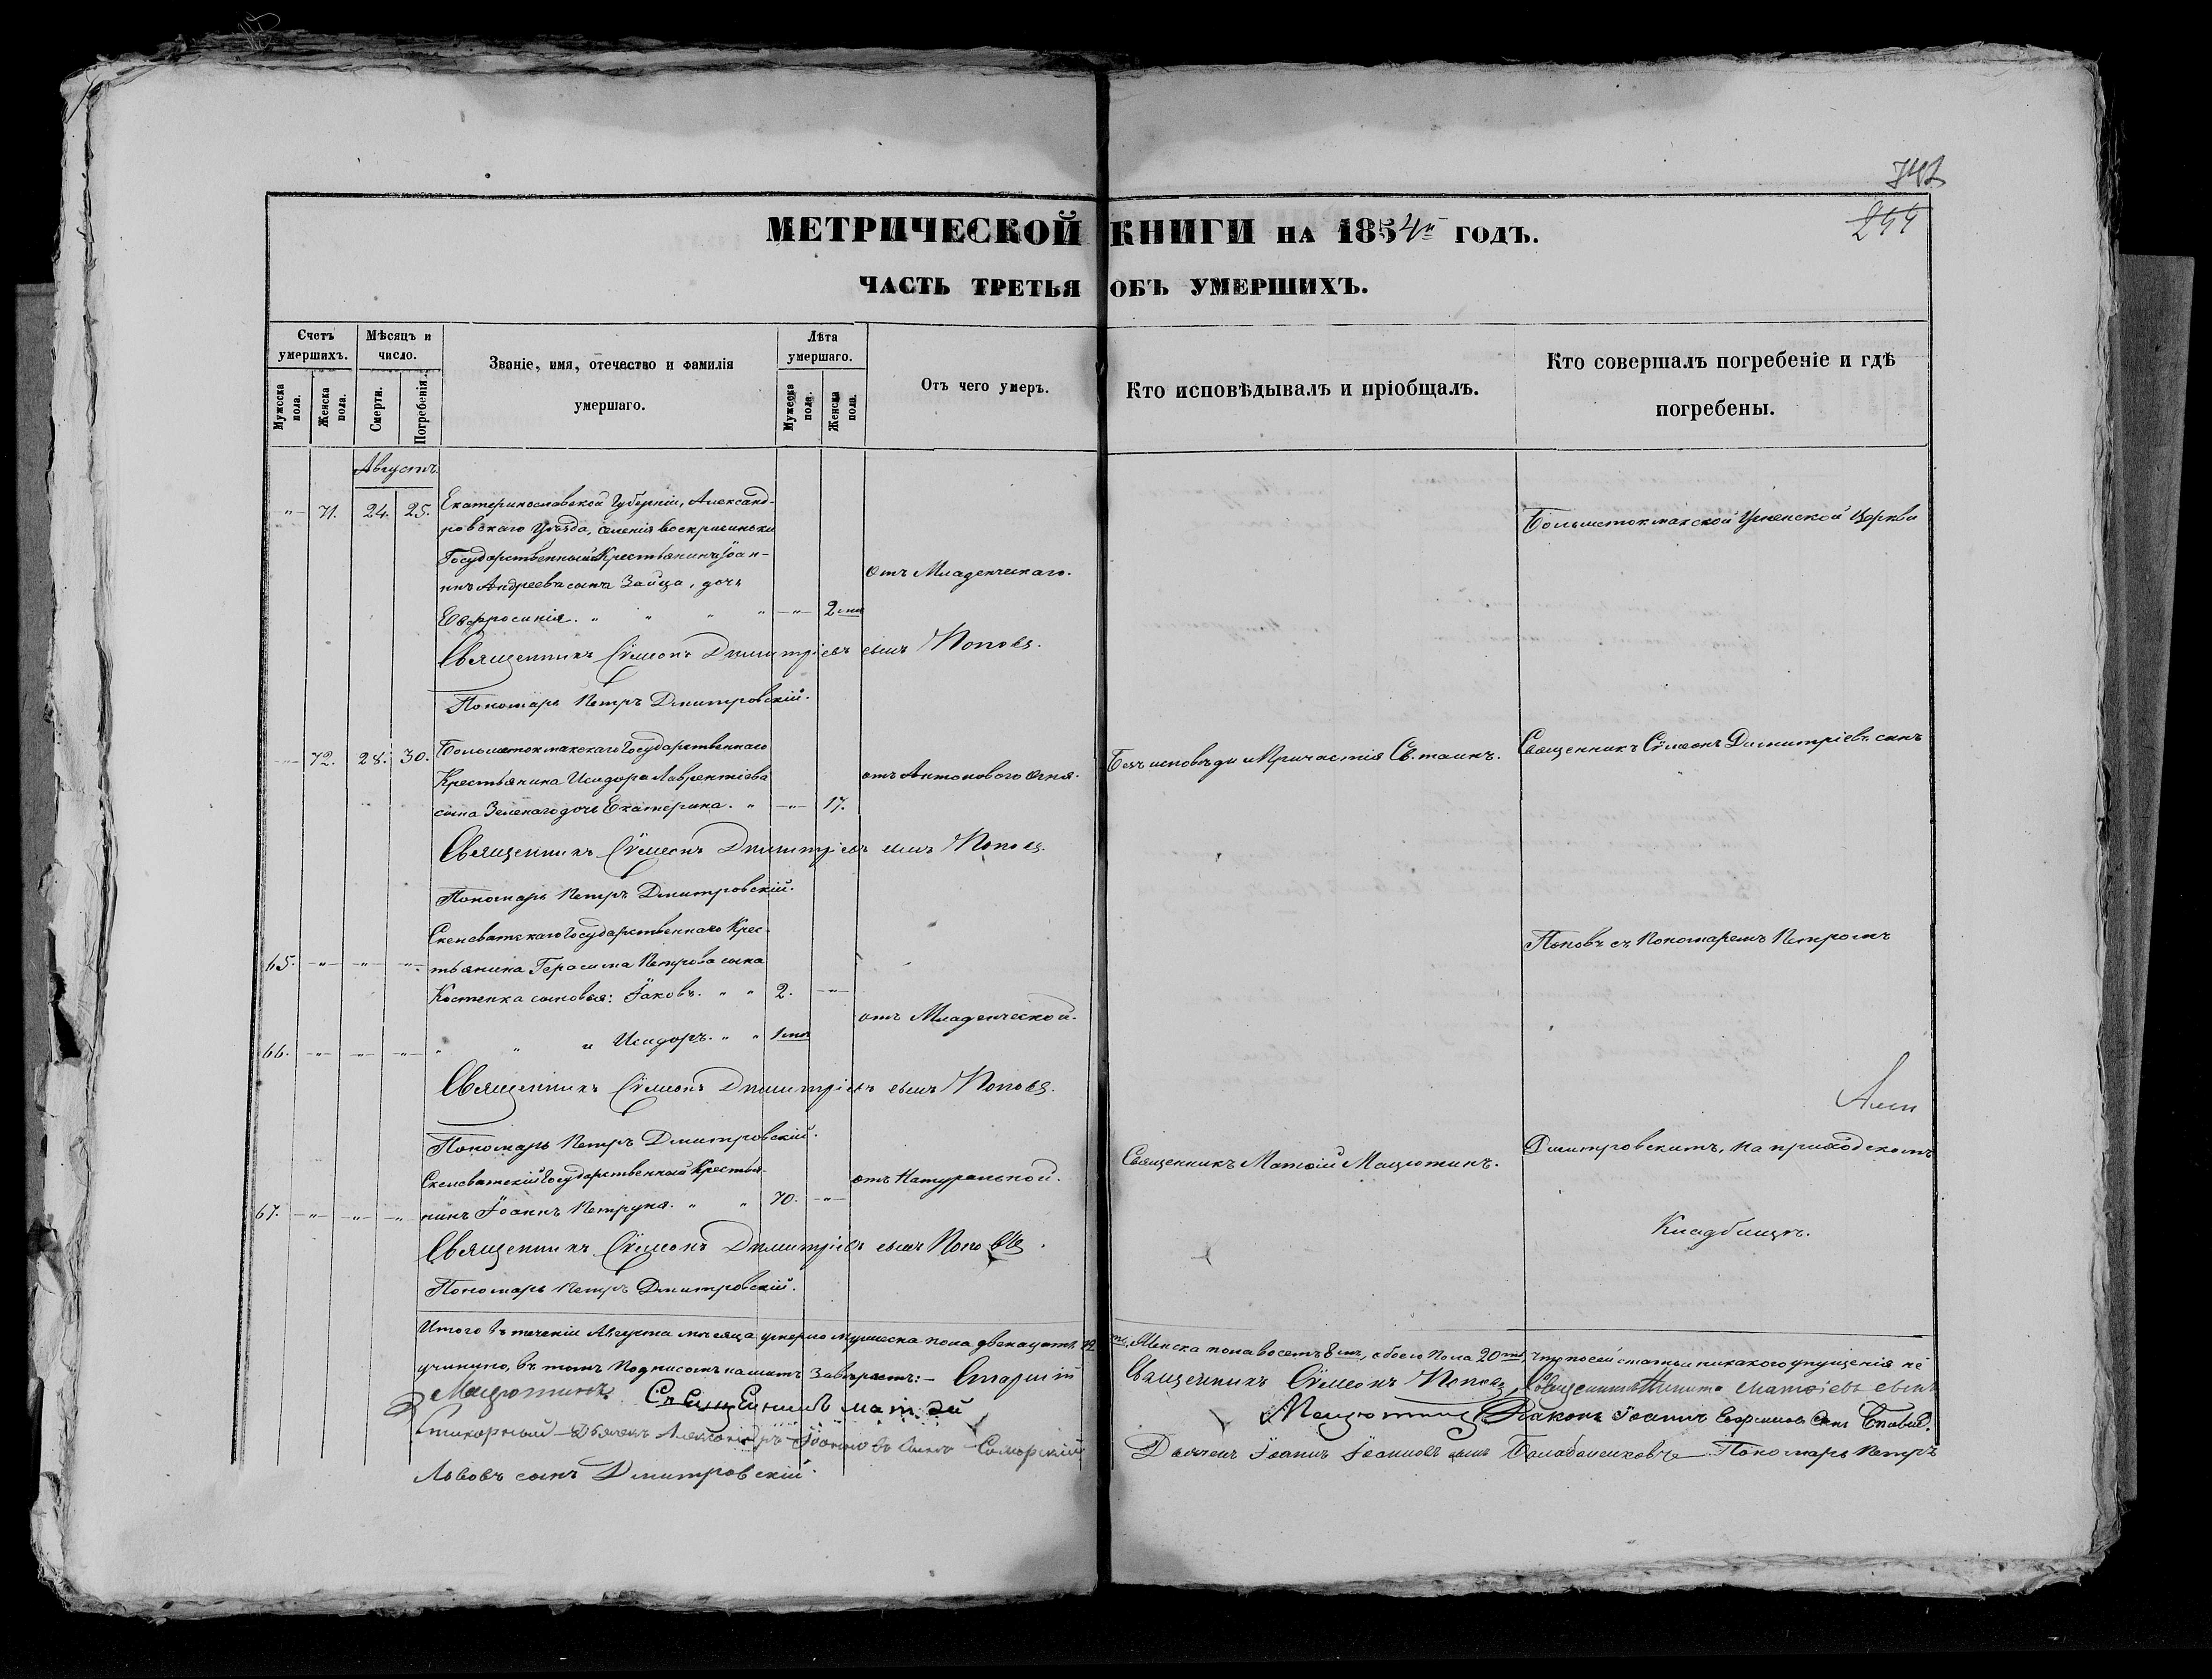 742
244
МЕТРИЧЕСКОЙ КНИГИ НА 1854й ГОДЪ.
ЧАСТЬ ТРЕТЬЯ ОБЪ УМЕРШИХЪ.
Счетъ умершихъ.
Мужеска пола.
Женска пола.
Мѣсяцъ и число.
Смерти.
Погребенія.
Званіе, имя, отечество и фамилія
умершаго.
Лѣта умершаго.
Мужеска пола.
Женска пола.
Отъ чего умеръ.
Кто исповѣдывалъ и пріобщалъ.
Кто совершалъ погребеніе и гдѣ
погребены.
Августъ
" 71. 24. 25. Екатеринославской Губерніи, Александ-
ровскаго Уѣзда, селенія Воскрисиньки
Государственный Крестьянинъ Іоан-
нъ Андреевъ сына Зайца, дочь
Евфросинія. " " " " " 2
отъ Младенческаго.
Большетокмакской Успенской Церкви
Священникъ Сѵмеонъ Димитріевъ сынъ Поповъ.
Пономарь Петръ Дмитровскій.
72. 28. 30. Большетокмакскаго Государственнаго
Крестьянина Исидора Лаврентіева
сына Зеленаго дочь Екатерина. " " 17.
отъ Антонового огня.
Безъ исповѣди и Причастія Св. таинъ.
Священникъ Сѵмеонъ Димитріевъ сынъ
Священникъ Сѵмеонъ Димитріевъ сынъ Поповъ.
Пономарь Петръ Дмитровскій.
Скелеватскаго Государственнаго Крес-
65. " " " тьянина Герасима Петрова сына
Костенка сыновья: Іаковъ. " " 2. "
66. " " " " " и Исидоръ. " " 1
отъ Младенческой.
Поповъ съ Пономаремъ Петромъ
Священникъ Сѵмеонъ Димитріевъ сынъ Поповъ.
Пономарь Петръ Дмитровскій.
Скелеватскій Государственный Крестья-
67. " " " нинъ Іоаннъ Петруня. " " 70. "
отъ Натуральной.
Священникъ Матѳій Мацютинъ.
Дмитровскимъ, на приходскомъ
Кладбищѣ.
Священникъ Сѵмеонъ Димитріевъ сынъ Поповъ.
Пономарь Петръ Дмитровскій.
Итого въ теченіи Августа мѣсяца умерло мужеска пола двенацать 12 Женска пола восемь 8, обоего Пола 20, что посей статьи никакого упущенія не
учинино, въ томъ Подписомъ нашимъ Завѣряемъ: Старшій Священникъ Сѵмеонъ Поповъ, Священникъ Никита Матѳіевъ сынъ
Мацютинъ Священникъ Матѳій Мацютинъ Діаконъ Іоаннъ сынъ
Стихорный Дьячекъ Александръ Іоанновъ сынъ Самарскій Дьячекъ Іоаннъ Іоанновъ сынъ Пономарь Петръ
Львовъ сынъ Дмитровскій.